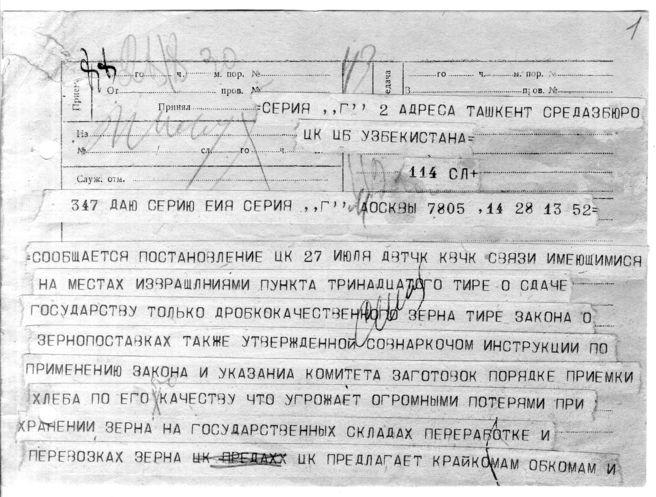 1
го ч. м. пор. №
От пров. №
Принял
го ч. м. пор. №
З пров. №
=СЕРИЯ ,,Г'' 2 АДРЕСА ТАШКЕНТ СРЕДАЗБЮРО
На
ЦК ЦБ УЗБЕКИСТАНА=
№ сл. го ч.
114 СЛ+
Служ. отм.
347 ДАЮ СЕРИЮ ЕИЯ СЕРИЯ ,,Г'' МОСКВЫ 7805 ,14 28 13 52=
=СООБЩАЕТСЯ ПОСТАНОВЛЕНИЕ ЦК 27 ИЮЛЯ ДВТЧК КВЧК СВЯЗИ ИМЕЮЩИМИСЯ
НА МЕСТАХ ИЗВРАЩЛНИЯМИ ПУНКТА ТРИНАДЦАТОГО ТИРЕ О СДАЧЕ
ГОСУДАРСТВУ ТОЛЬКО ДРОБКОКАЧЕСТВЕННОГО ЗЕРНА ТИРЕ ЗАКОНА О
ЗЕРНОПОСТАВКАХ ТАКЖЕ УТВЕРЖДЕННОЙ СОВНАРКОЧОМ ИНСТРУКЦИИ ПО
ПРИМЕНЕНИЮ ЗАКОНА И УКАЗАНИА КОМИТЕТА ЗАГОТОВОК ПОРЯДКЕ ПРИЕМКИ
ХЛЕБА ПО ЕГО КАЧЕСТВУ ЧТО УГРОЖАЕТ ОГРОМНЫМИ ПОТЕРЯМИ ПРИ
ХРАНЕНИИ ЗЕРНА НА ГОСУДАРСТВЕННЫХ СКЛАДАХ ПЕРЕРАБОТКЕ И
ПЕРЕВОЗКАХ ЗЕРНА ЦК ПРЕДАХХ ЦК ПРЕДЛАГАЕТ КРАЙКОМАМ ОБКОМАМ И